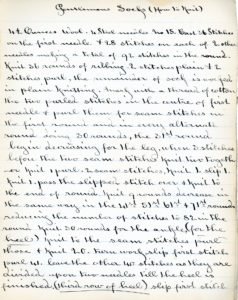 Gentlemens Socks (How to Knit)
4 oz Ounces Wool. 4 Steel needles No 15. Cast 36 Stitches
on the first needle & 28 stitches on each of 2 other
needles making a total of 92 stitches in the round
Knit 36 rounds of ribbing 2 stitches plain & 2
stitches purl, the remainder of sock is worked
in plain knitting. Mark with a thread of cotton
the two purled stitches in the centre of first
needle & purl them for seam stitches in
the first round, & in every alternate
round doing 20 rounds, the 21st round
begin decreasing for the leg, when 3 stitches
before the two seam stitches Knit two together
Knit 1 purl 2 seam stitches, Knit 1 slip 1
Knit 1, pass the slipped stitch over & Knit to
the end of round. Knit 9 rounds decrease in
the same way in the 41st 51st 61st & 71st rounds
reducing the number of stitches to 82 in the
round Knit 30 rounds for the ankle, (for the
heel) Knit to the seam stitches purl
those & Knit 20. turn work, slip first stitch
purl 41. leave the other 40 stitches as they are
divided upon two needles till the heel is
finished, (third row of heel) slip first stitch